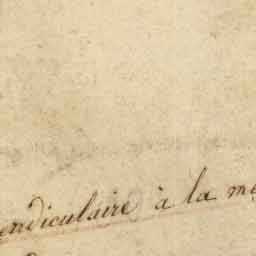 endiculaire à la me